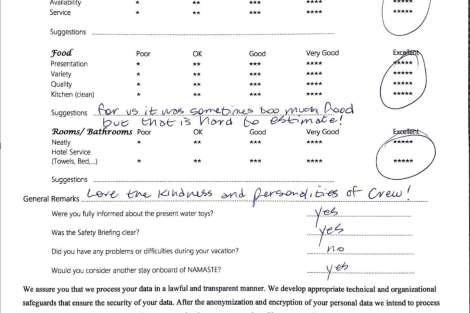 Availability * ** *** **** *****
Service * ** *** **** *****
Suggestions
Food Poor OK Good Very Good Excellent
Presentation * ** *** **** *****
Variety * ** *** **** *****
Quality * ** *** **** *****
Kitchen (clean) * ** *** **** *****
Suggestions for us it was sometimes too much food
but that is hard to estimate!
Rooms/ Bathrooms Poor OK Good Very Good Excellent
Neatly
Hotel Service * ** *** **** *****
(Towels, Bed,...)
Suggestions
General Remarks Love the kindness and personalities of Crew!
Were you fully informed about the present water toys? yes
Was the Safety Briefing clear? yes
Did you have any problems or difficulties during your vacation? no
Would you consider another stay onboard of NAMASTE? yes
We assure you that we process your data in a lawful and transparent manner. We develop appropriate technical and organizational
safeguards that ensure the security of your data. After the anonymization and encryption of your personal data we intend to process